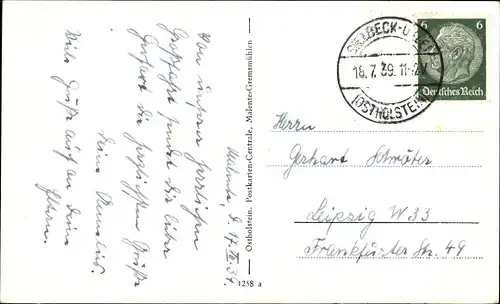 Malente, d. 17. VII. 39.
Von unserer herrlichen
Großfahrt sendet Dir lieber
Gerhart die herzlichsten Grüße
Deine
Viele Grüße auch an Deine
Eltern.
Ostholstein. Postkarten-Centrale, Malente-Gremsmühlen
1258 a
18.7.39.11-
(OSTHOLSTEIN)
6 6
Deutsches Reich
Herrn
Gerhart Schröter
Leipzig W 33
Frankfurter Str. 49